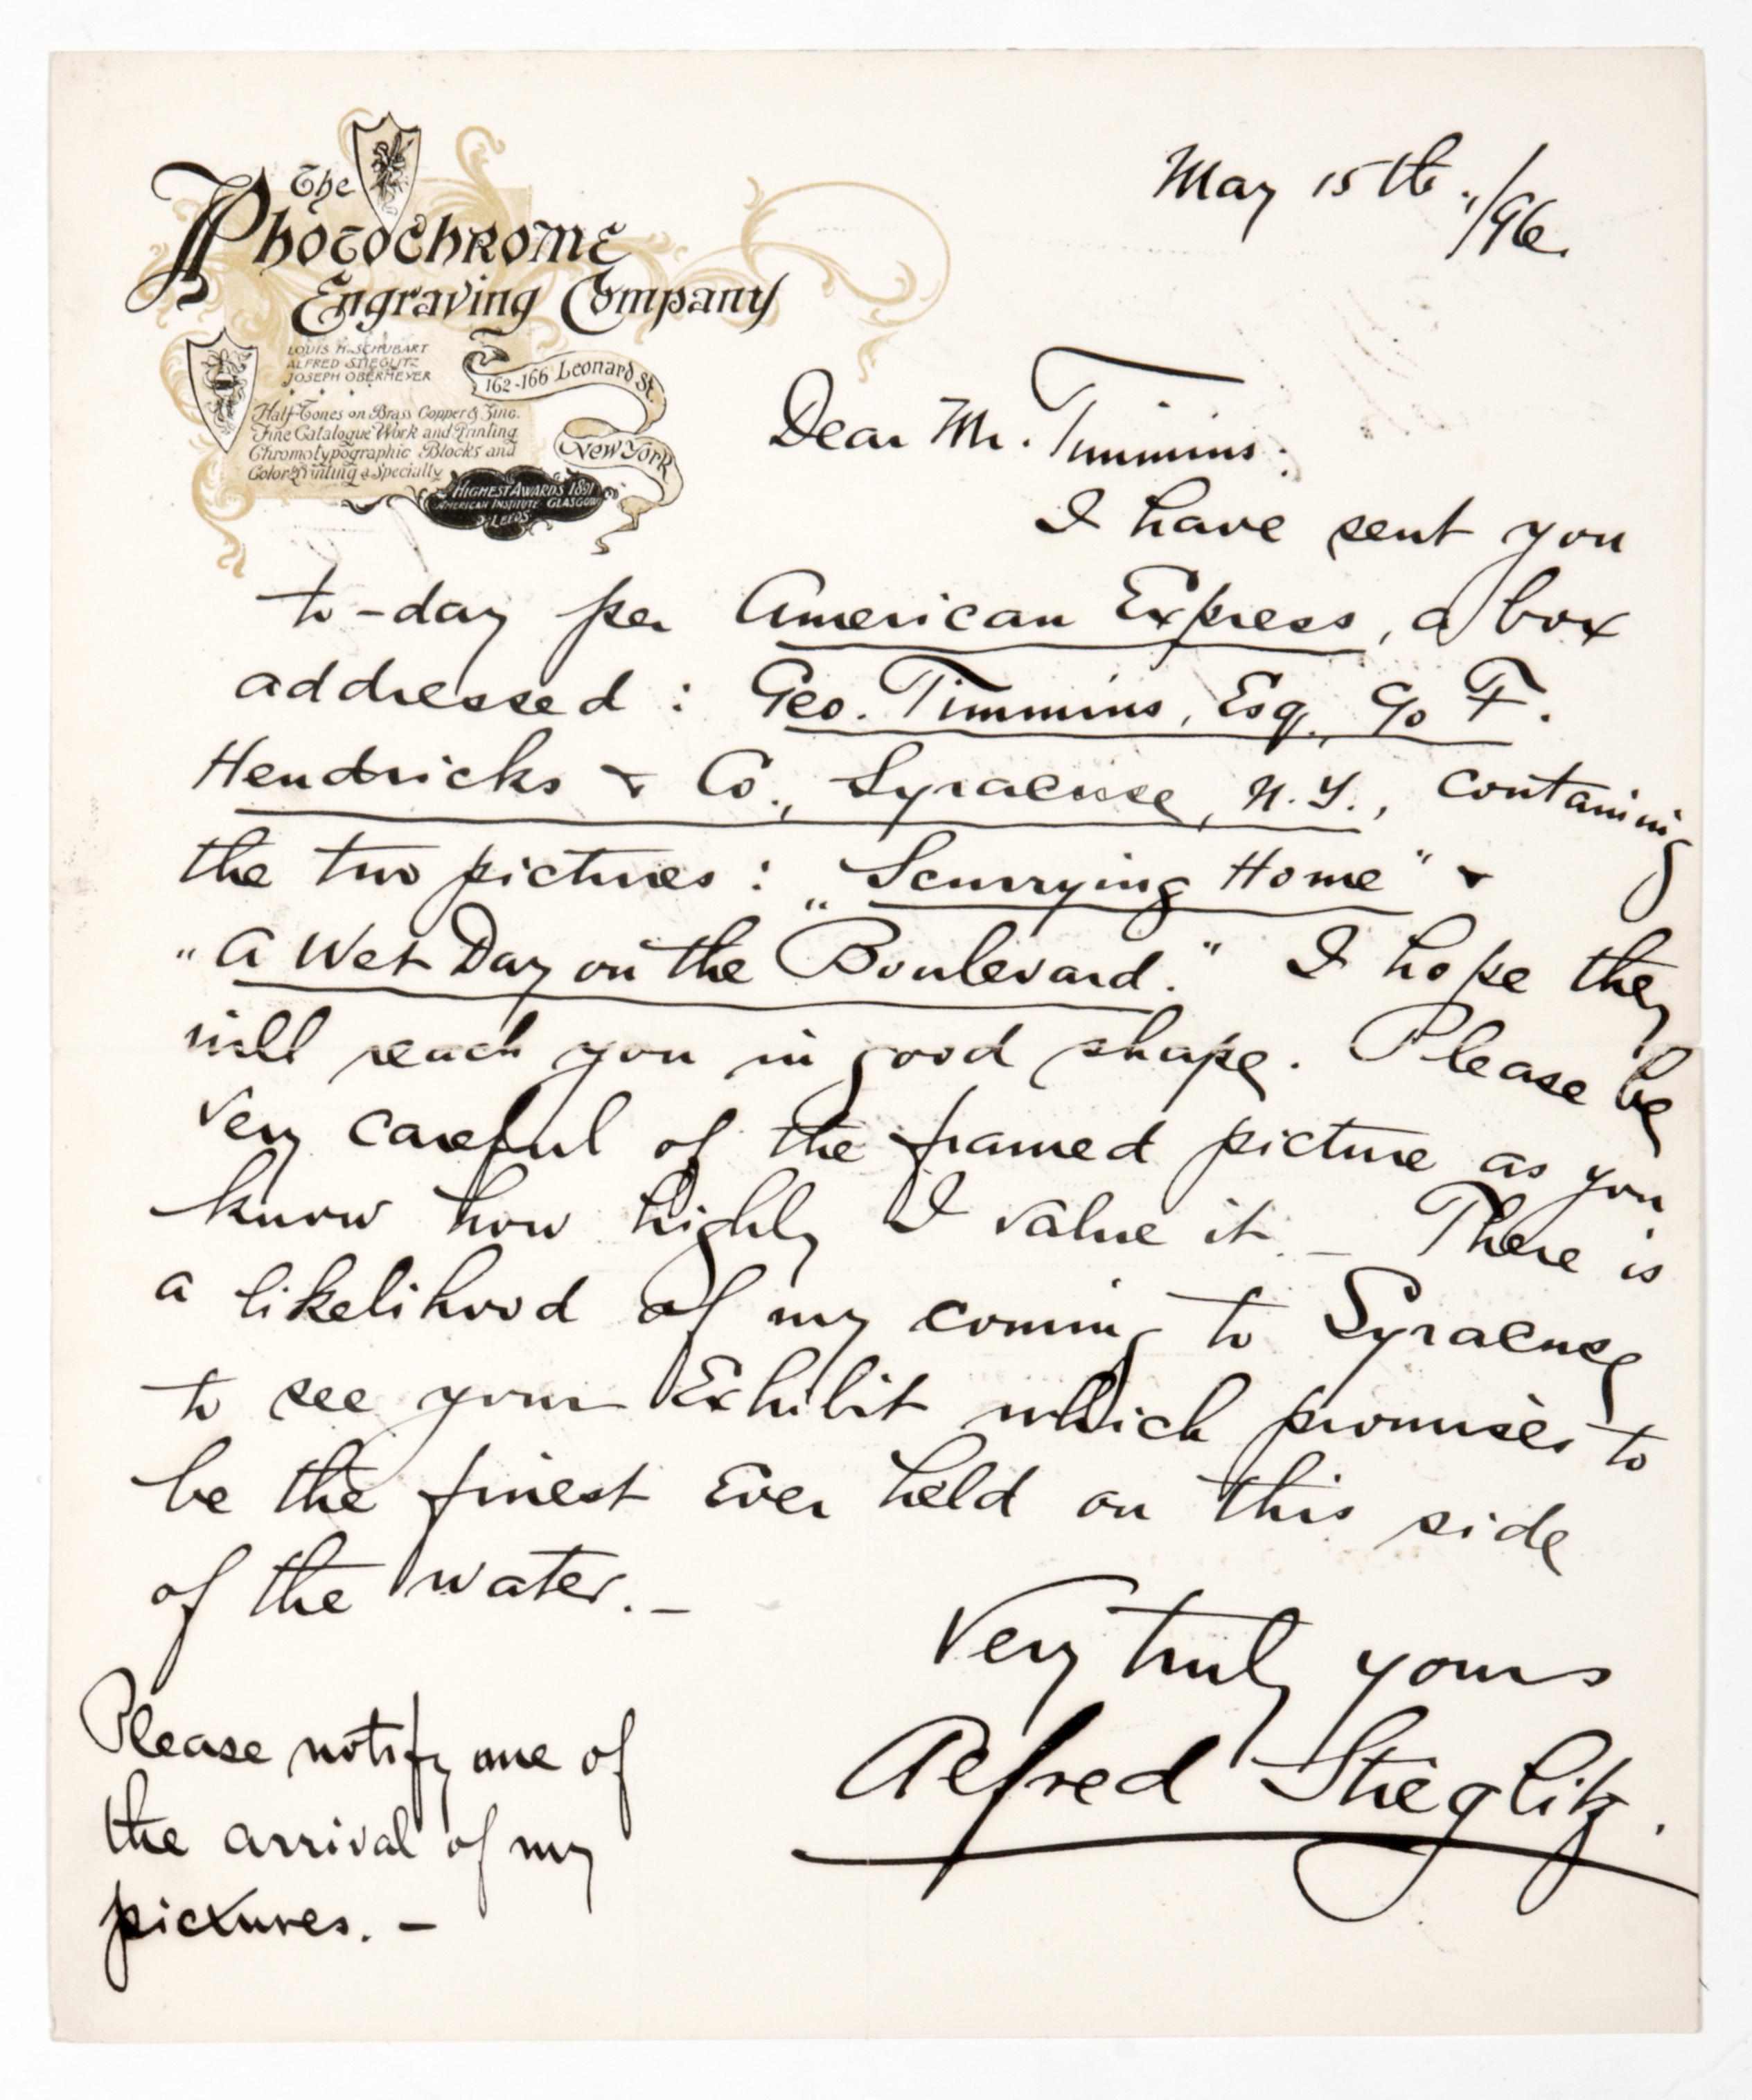 The
Photochrome
Engraving Company
LOUIS H. SCHUBART
ALFRED STIEGLITZ
JOSEPH OBERMEYER
162-166 Leonard St.
New York
Half-Tones on Brass Copper & Zinc.
Fine Catalogue Work and Printing
Chromotypographic Blocks and
Color Printing a Specialty
HIGHEST AWARDS 1891
AMERICAN INSTITUTE GLASGOW
LEEDS
May 15th, /96.
Dear Mr. Timmins:
I have sent you
to-day per American Express, a box
addressed: Geo. Timmins, Esq., c/o F.
Hendricks & Co., Syracuse, N.Y., containing
the two pictures: „Scurrying Home" &
"A Wet Day on the Boulevard." I hope they
will reach you in good shape. Please be
very careful of the framed picture as you
know how highly I value it. — There is
a likelihood of my coming to Syracuse
to see your Exhibit which promises to
be the finest ever held on this side
of the water. —
Very truly yours
Alfred Stieglitz.
Please notify me of
the arrival of my
pictures. —